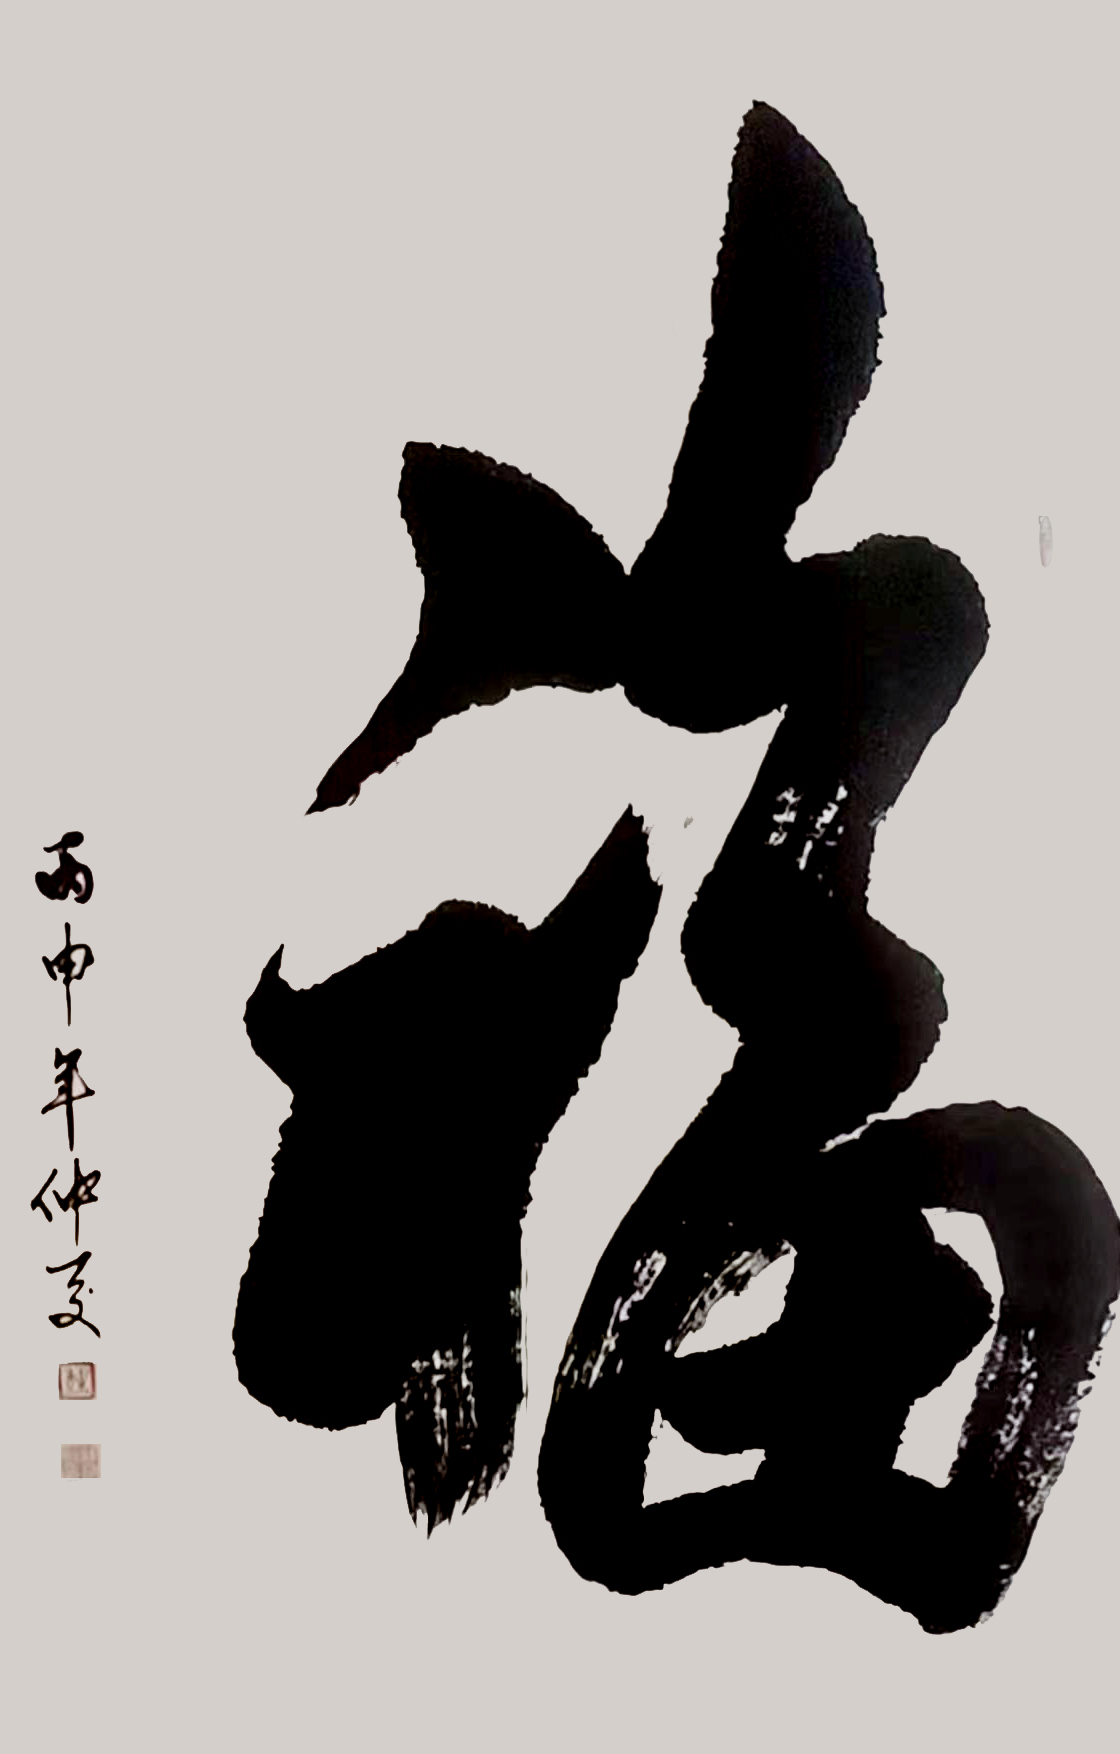 福
丙申年仲夏